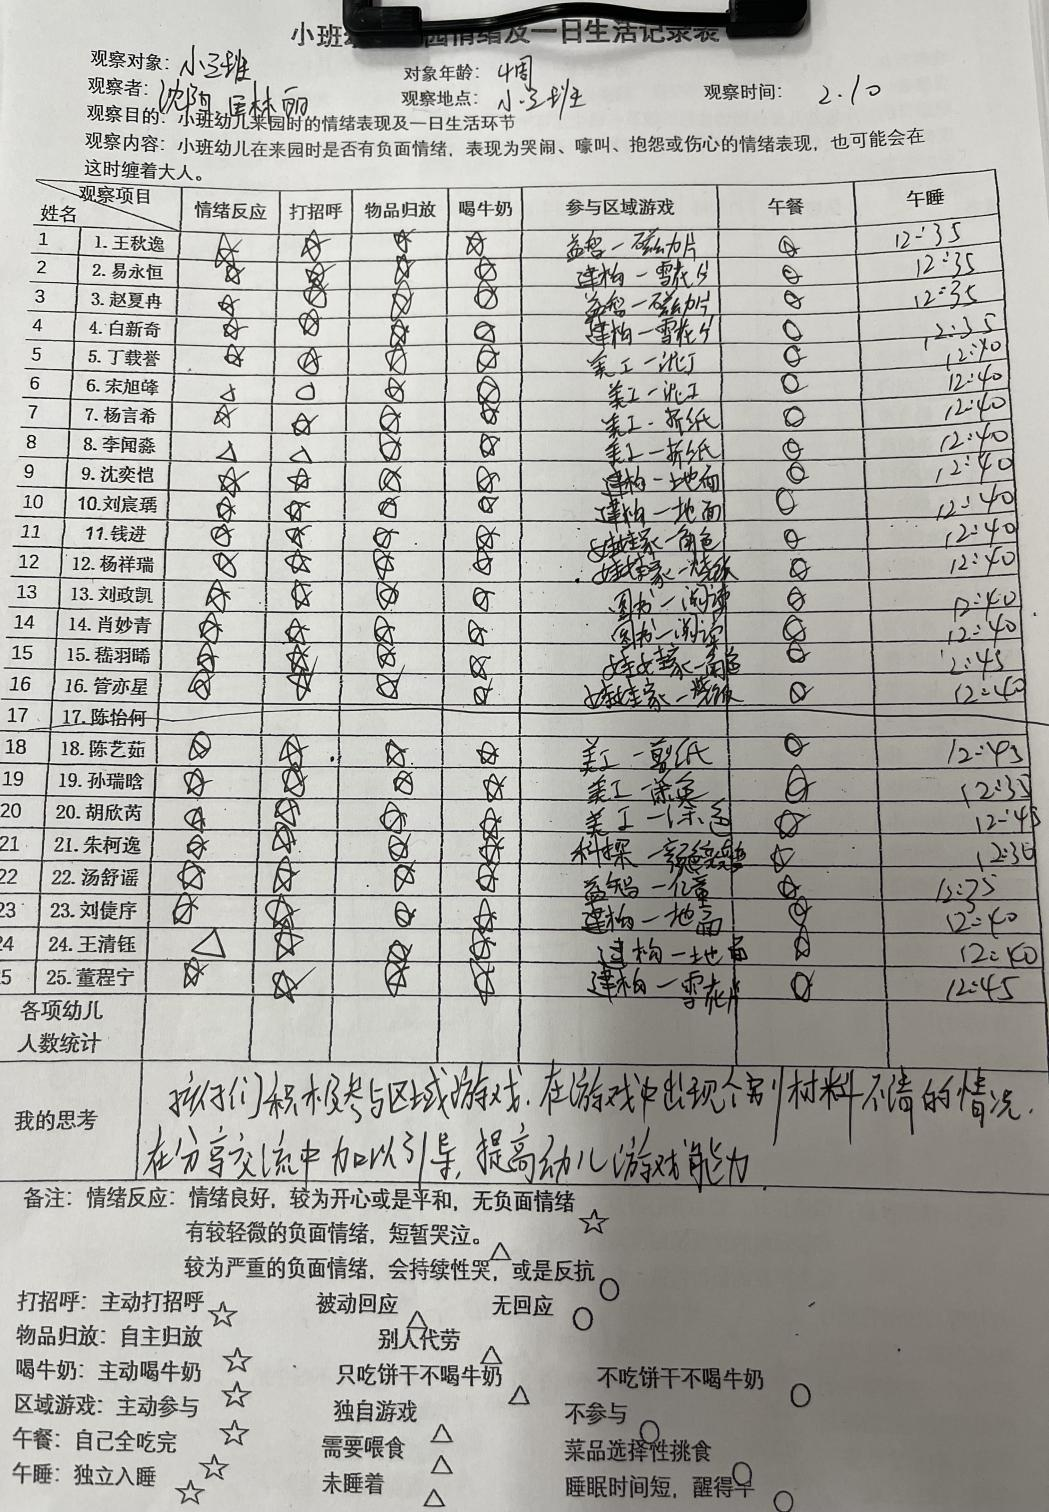 小班幼 园情绪及一日生活记录表
观察对象：小三班 对象年龄：4周
观察者：沈 林丽 观察地点：小三班 观察时间：2.10
观察目的：小班幼儿来园时的情绪表现及一日生活环节
观察内容：小班幼儿在来园时是否有负面情绪，表现为哭闹、嚎叫、抱怨或伤心的情绪表现，也可能会在
这时缠着大人。
观察项目 姓名 情绪反应 打招呼 物品归放 喝牛奶 参与区域游戏 午餐 午睡
1 1. 王秋逸 ☆ ☆ ☆ ☆ 益智一磁力片 12:35
2 2. 易永恒 建构一雪花片 12:35
3 3. 赵夏冉 益智一磁力片 12:35
4 4. 白新奇 建构一雪花片 12:35
5 5. 丁载誉 美工一 12:40
6 6. 宋旭峰 美工一 12:40
7 7. 杨言希 美工一折纸 12:40
8 8. 李闻淼 △ △ 美工一折纸 12:40
9 9. 沈奕恺 建构一地面 12:40
10 10. 刘宸瑀 建构一地面 12:40
11 11. 钱进 娃娃家一角色 12:40
12 12. 杨祥瑞 娃娃家一烧饭 12:40
13 13. 刘政凯 图书一阅读 12:40
14 14. 肖妙青 图书一阅读 12:40
15 15. 嵇羽晞 娃娃家一角色 12:45
16 16. 管亦星 娃娃家一烧饭 12:40
17 17. 陈怡何
18 18. 陈艺茹 美工一剪纸 12:45
19 19. 孙瑞晗 美工一涂色 12:35
20 20. 胡欣芮 美工一涂色 12:45
21 21. 朱柯逸 科探一 12:36
22 22. 汤舒谣 益智一 12:35
23 23. 刘倢序 建构一地面 12:40
24 24. 王清钰 △ 建构一地面 12:40
25 25. 董程宁 建构一雪花片 12:45
各项幼儿
人数统计
我的思考
孩子们积极参与区域游戏，在游戏中出现个别材料不清的情况，
在分享交流中加以引导，提高幼儿游戏能力.
备注：情绪反应：情绪良好，较为开心或是平和，无负面情绪 ☆
有较轻微的负面情绪，短暂哭泣。 △
较为严重的负面情绪，会持续性哭，或是反抗 ○
打招呼：主动打招呼 ☆ 被动回应 △ 无回应 ○
物品归放：自主归放 ☆ 别人代劳 △
喝牛奶：主动喝牛奶 ☆ 只吃饼干不喝牛奶 △ 不吃饼干不喝牛奶 ○
区域游戏：主动参与 ☆ 独自游戏 △ 不参与 ○
午餐：自己全吃完 ☆ 需要喂食 △ 菜品选择性挑食 ○
午睡：独立入睡 ☆ 未睡着 △ 睡眠时间短，醒得早 ○